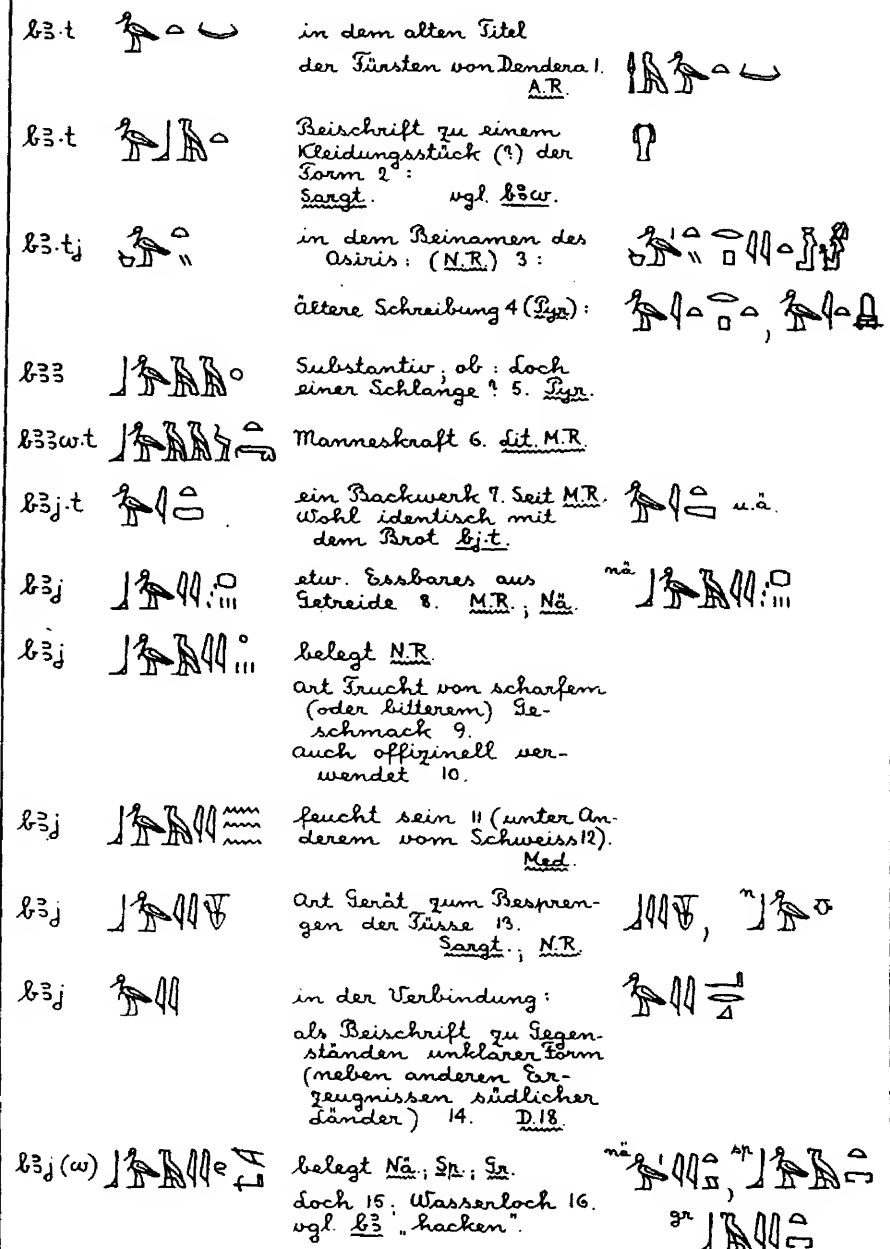 bꜣ·t in dem alten Titel
der Fürsten von Dendera 1.
A.R.
bꜣ·t Beischrift zu einem
Kleidungsstück (?) der
Form 2 :
Sargt. vgl. bꜣw.
bꜣ·tj in dem Beinamen des
Osiris: (N.R.) 3 :
ältere Schreibung 4 (Pyr) : ,
bꜣꜣ Substantiv; ob : Loch
einer Schlange ? 5. Pyr.
bꜣꜣw·t Manneskraft 6. Lit. M.R.
bꜣj·t ein Backwerk 7. Seit M.R. u.ä.
Wohl identisch mit
dem Brot bj·t.
bꜣj etw. Essbares aus nä
Getreide 8. M.R.; Nä.
bꜣj belegt N.R.
Art Frucht von scharfem
(oder bitterem) Ge-
schmack 9.
auch offizinell ver-
wendet 10.
bꜣj feucht sein 11 (unter An-
derem vom Schweiss 12).
Med.
bꜣj Art Gerät zum Bespren- , n
gen der Füsse 13.
Sargt.; N.R.
bꜣj in der Verbindung:
als Beischrift zu Gegen-
ständen unklarer Form
(neben anderen Er-
zeugnissen südlicher
Länder) 14. D.18.
bꜣj(w) belegt Nä.; Sp.; Gr. nä , sp
Loch 15; Wasserloch 16.
vgl. bꜣ „hacken“. gr